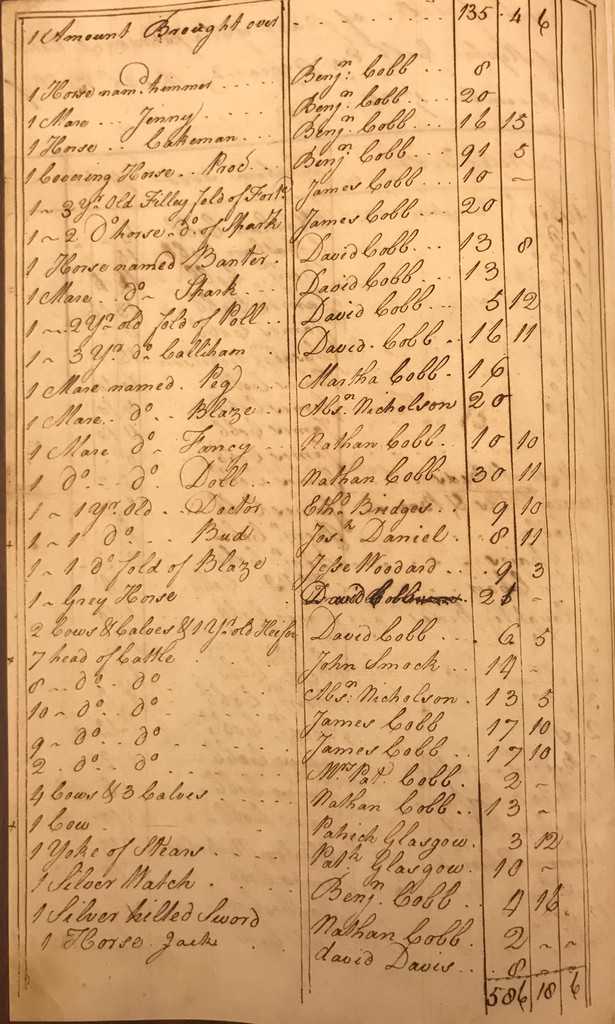 1 Amount Brought over - . . . . . . 135 4 6
1 Horse nam.d trimmer . . . . Benj.n Cobb . . . 8
1 Mare . . . Jenny . . . . Benj.n Cobb . . . 20
1 Horse . . Cakeman . . . . Benj.n Cobb . . . 16 15
1 Covering Horse . . Prod. . . . Benj.n Cobb . . . 91 5
1 ~ 3 Yr. Old Filley fold of James Cobb . . . 10 ~
1 ~ 2 Do. horse ~ do. of Spark James Cobb . . . 20
1 Horse named Banter . David Cobb . . . 13 8
1 Mare . . do. ~ Spark . . . David Cobb . . . 13
1 ~ 2 Yr. old fold of Poll . . David Cobb . . . 5 12
1 ~ 3 Yr. do. Calliham . . David Cobb . . 16 11
1 Mare named . Peg . . . Martha Cobb . 16
1 Mare . . do. . . Blaze . . . Abs.m Nicholson 20
1 Mare do. . Fancy . . . Nathan Cobb . . 10 10
1 do. . . do. Doll . . . Nathan Cobb . . 30 11
1 ~ 1 Yr. old . . Doctor . . . Eth.d Bridges . . . 9 10
1 ~ 1 do. . . . Bud . . . Jos.h Daniel . . 8 11
1 ~ 1 do. fold of Blaze Jesse Woodard . . . 9 3
1 ~ Grey Horse David Cobb 21 ~
2 Cows & Calves & 1 Yr. old Heifor David Cobb . . . 6 5
7 head of Cattle . . . . John Smock . . . 14 ~
8 ~ do. do. . . . . Abs.m Nicholson . 13 5
10 ~ do. . do. . . . . James Cobb . . 17 10
9 ~ do. . . do. . . . . James Cobb . . 17 10
2 . do. . . do. . . . . Mrs Pat. Cobb . . 2 ~
4 Cows & 3 Calves . . . . Nathan Cobb . . 13 ~
1 Cow . . . . . Patrick Glasgow . . 3 12
1 Yoke of Stears . . . . Pat.k Glasgow . 10 ~
1 Silver Watch . . . . Benj.n Cobb . . 4 16
1 Silver hilted Sword Nathan Cobb . 2 ~ ~
1 Horse Jack . david Davis . . 8 ~ ~
586 18 6